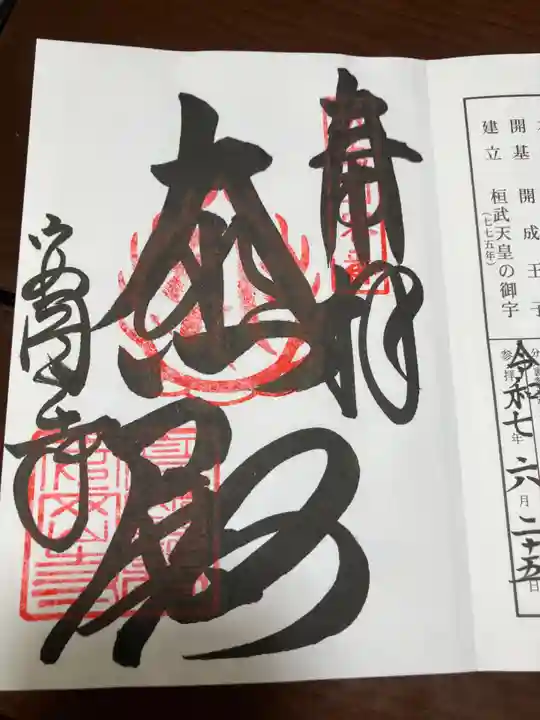 開基 開成王子
建立 桓武天皇の御宇
(七七五年)
参拝
令和七年六月二十五日
奉拝
大悲殿
安岡寺